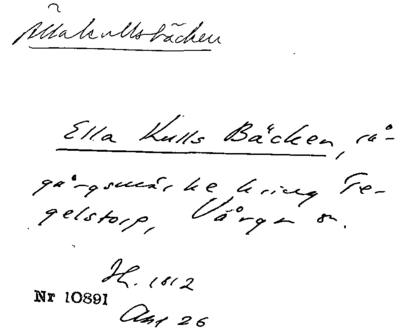 Ållakullsbäcken
Ella Kulls Bäcken, rå-
gångsmärke kring Te-
gelstorp, Vårgn sn.
Jh. 1812
Nr 10891
Akt 26